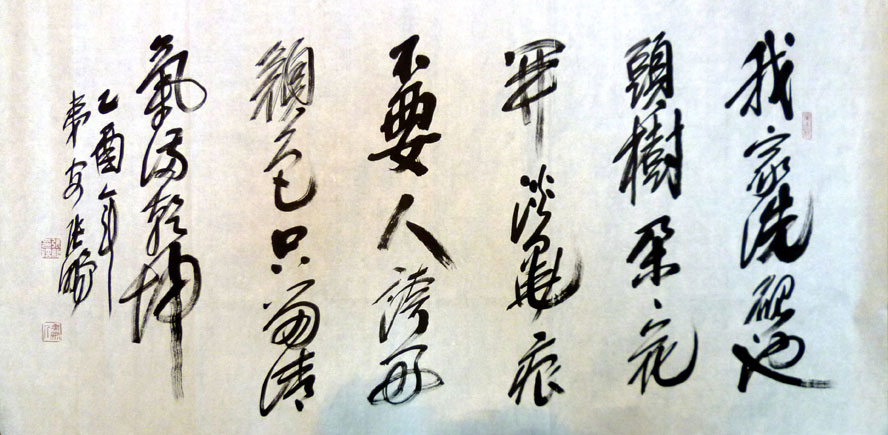 我家洗硯池
頭樹朵々花
開淡墨痕
不要人誇好
顏色只留清
氣滿乾坤
乙酉年